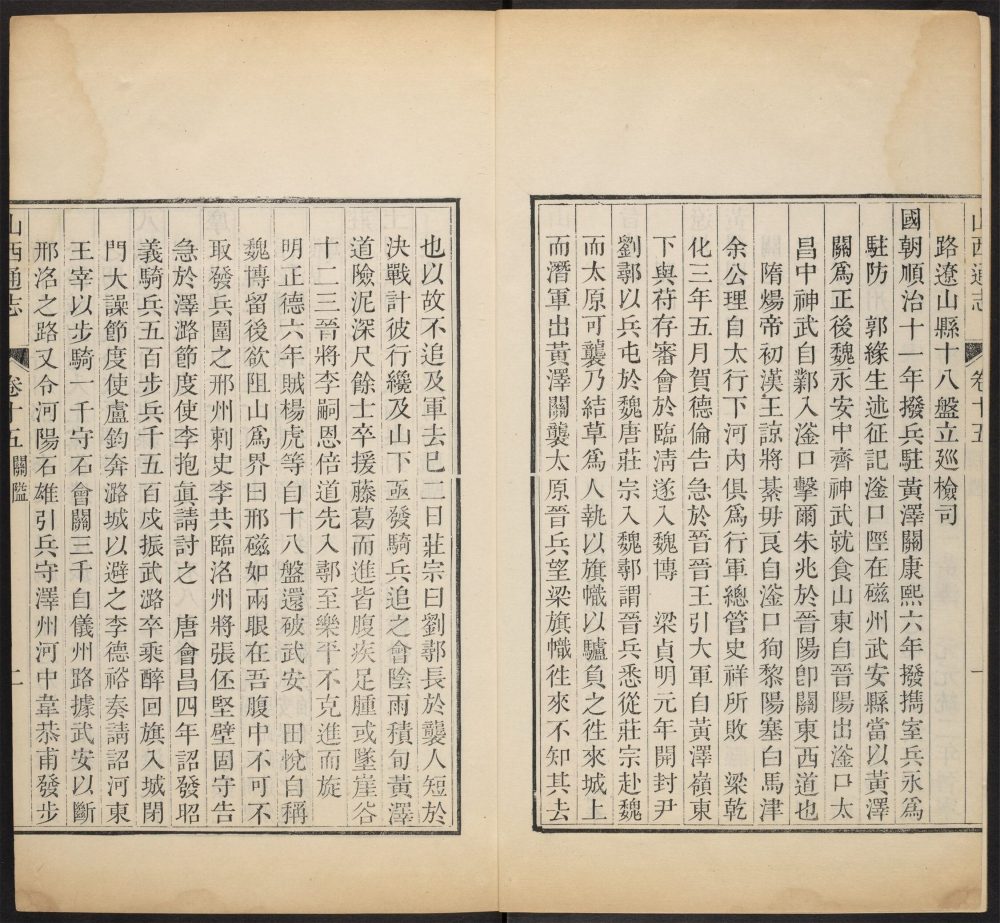 山西通志 卷十五 一
路遼山縣十八盤立巡檢司
國朝順治十一年撥兵駐黃澤關康熙六年撥攜室兵永爲
駐防 郭緣生述征記滏口陘在磁州武安縣當以黃澤
關爲正後魏永安中齊神武就食山東自晉陽出滏口太
昌中神武自鄴入滏口擊爾朱兆於晉陽卽關東西道也
隋煬帝初漢王諒將綦毋良自滏口狥黎陽塞白馬津
余公理自太行下河內俱爲行軍總管史祥所敗 梁乾
化三年五月賀德倫告急於晉晉王引大軍自黃澤嶺東
下與苻存審會於臨淸遂入魏博 梁貞明元年開封尹
劉鄩以兵屯於魏唐莊宗入魏鄩謂晉兵悉從莊宗赴魏
而太原可襲乃結草爲人執以旗幟以驢負之徃來城上
而潛軍出黃澤關襲太原晉兵望梁旗幟徃來不知其去
也以故不追及軍去已二日莊宗曰劉鄩長於襲人短於
決戰計彼行纔及山下亟發騎兵追之會陰雨積旬黃澤
道險泥深尺餘士卒援藤葛而進皆腹疾足腫或墜崖谷
十二三晉將李嗣恩倍道先入鄩至樂平不克進而旋
明正德六年賊楊虎等自十八盤還破武安 田悅自稱
魏博留後欲阻山爲界曰邢磁如兩眼在吾腹中不可不
取發兵圍之邢州刺史李共臨洺州將張伾堅壁固守告
急於澤潞節度使李抱眞請討之 唐會昌四年詔發昭
義騎兵五百步兵千五百戍振武潞卒乘醉回旗入城閉
門大譟節度使盧鈞奔潞城以避之李德裕奏請詔河東
王宰以步騎一千守石會關三千自儀州路據武安以斷
邢洺之路又令河陽石雄引兵守澤州河中韋恭甫發步
山西通志 卷十五 關隘 二